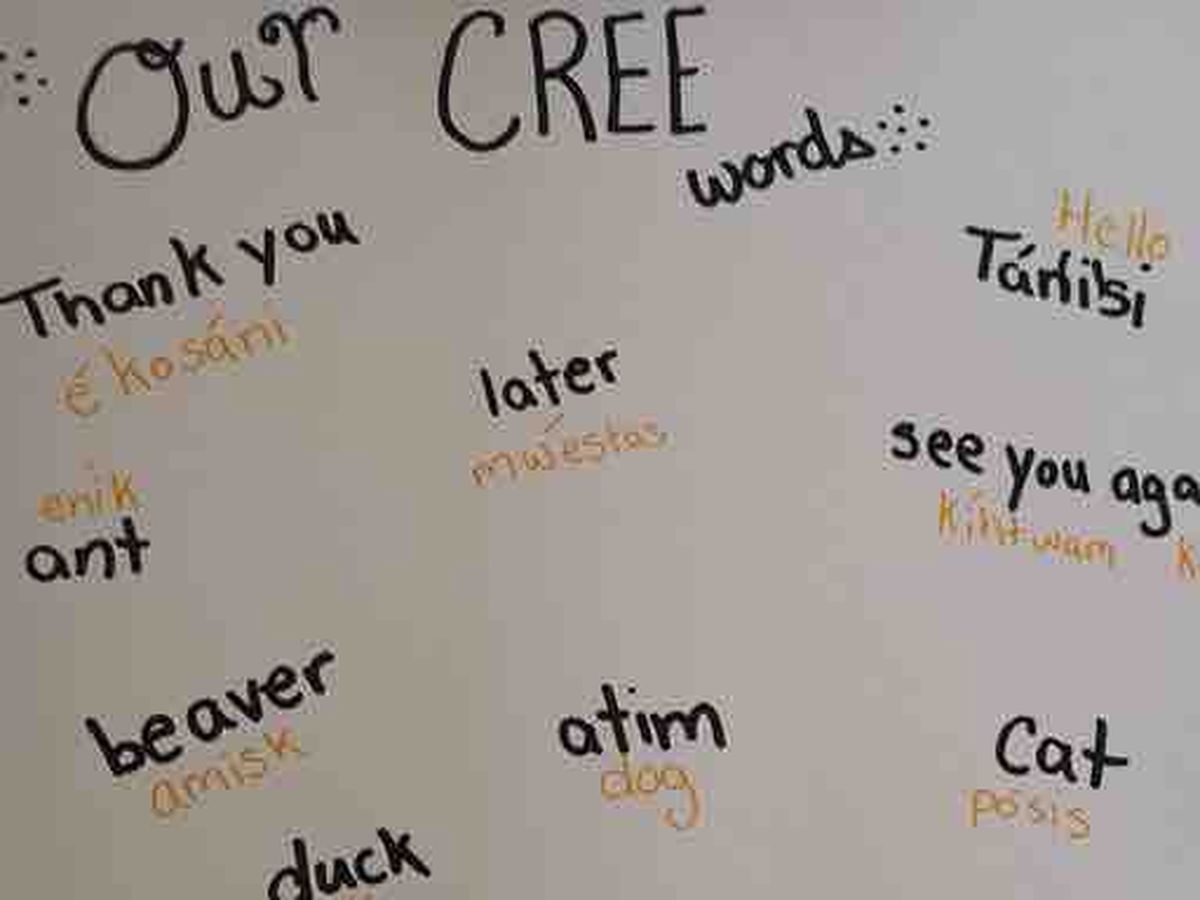 Our CREE
words
Hello
Tánisi
Thank you
é kosáni
later
mwéstas
see you aga
kíhtwam k
enik
ant
beaver
amisk
atim
dog
Cat
pósís
duck